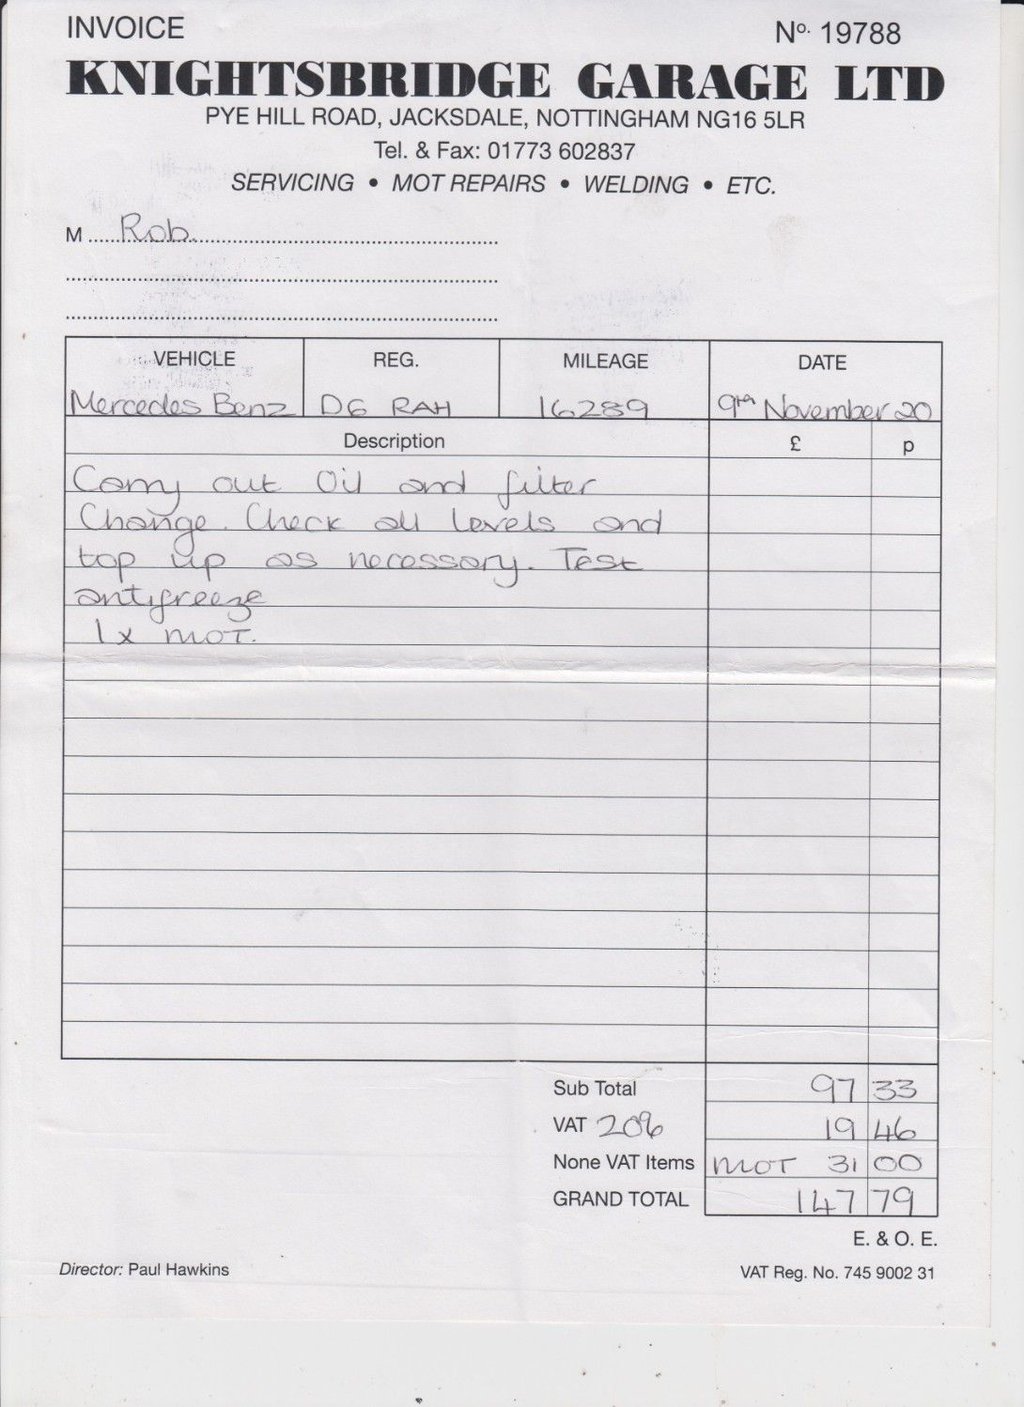 INVOICE
No. 19788
KNIGHTSBRIDGE GARAGE LTD
PYE HILL ROAD, JACKSDALE, NOTTINGHAM NG16 5LR
Tel. & Fax: 01773 602837
SERVICING • MOT REPAIRS • WELDING • ETC.
M Rob.
VEHICLE REG. MILEAGE DATE
Mercedes Benz D6 RAH 16289 9th November 20
Description £ p
Carry out Oil and filter
Change. Check all levels and
top up as necessary. Test
antifreeze
1x MOT.
Sub Total 97 33
VAT 20% 19 46
None VAT Items MOT 31 00
GRAND TOTAL 147 79
E. & O. E.
Director: Paul Hawkins
VAT Reg. No. 745 9002 31